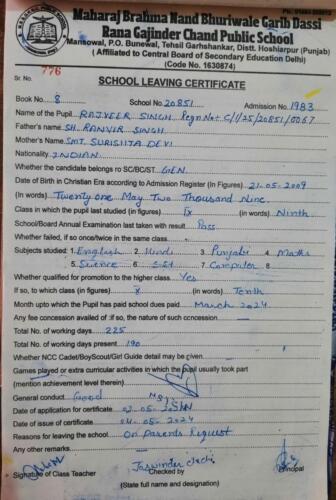 Maharaj Brahma Nand Bhuriwale Garib Dassi
Rana Gajinder Chand Public School
Mansowal, P.O. Bunewal, Tehsil Garhshankar, Distt. Hoshiarpur (Punjab)
( Affiliated to Central Board of Secondary Education Delhi)
(Code No. 1630874)
Sr. No. 776
SCHOOL LEAVING CERTIFICATE
Book No. 8 School No. 20851 Admission No. 1983
Name of the Pupil RAJVEER SINGH Regn No+ C/1/25/20851/0067
Father's name SH. RANVIR SINGH
Mother's Name SMT. SURISHTA DEVI
Nationality INDIAN
Whether the candidate belongs ro SC/BC/ST GEN.
Date of Birth in Christian Era according to Admission Register (In Figures) 21-05-2009
(In words) Twenty one May Two Thousand Nine
Class in which the pupil last studied (in figures) IX (in words) Ninth
School/Board Annual Examination last taken with result Pass
Whether failed, if so once/twice in the same class
Subjects studied: 1. English 2. Hindi 3. Punjabi 4. Maths
5. Science 6. S.St 7. Computer 8
Whether qualified for promotion to the higher class Yes
If so, to which class (in figures) X (in words) Tenth
Month upto which the Pupil has paid school dues paid March 2024
Any fee concession availed of :if so, the nature of such cncession
Total No. of working days 225
Total No. of working days present 190
Whether NCC Cadet/BoyScout/Girl Guide detail may be given
Games played or extra curricular activities in which the pupil usually took part
(mention achievement level therein)
General conduct Good
Date of application for certificate 02-05-2024
Date of issue of certificate 04-05-2024
Reasons for leaving the school On Parents Request
Any other remarks
Signature of Class Teacher Checked by Principal
(State full name and designation)